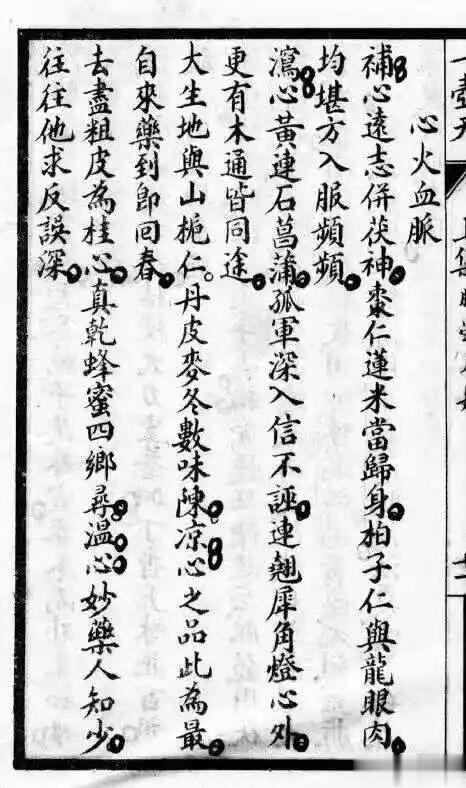 一壺天
心火血脈
補心遠志併茯神。棗仁蓮米當歸身。柏子仁與龍眼肉。
均堪方入服頻頻。
瀉心黃連石菖蒲。孤軍深入信不誣。連翹犀角燈心外。
更有木通皆同途。
大生地與山梔仁。丹皮麥冬數味陳。凉心之品此為最。
自來藥到即回春。
去盡粗皮為桂心。真乾蜂蜜四鄉尋。溫心妙藥人知少。
往往他求反誤深。